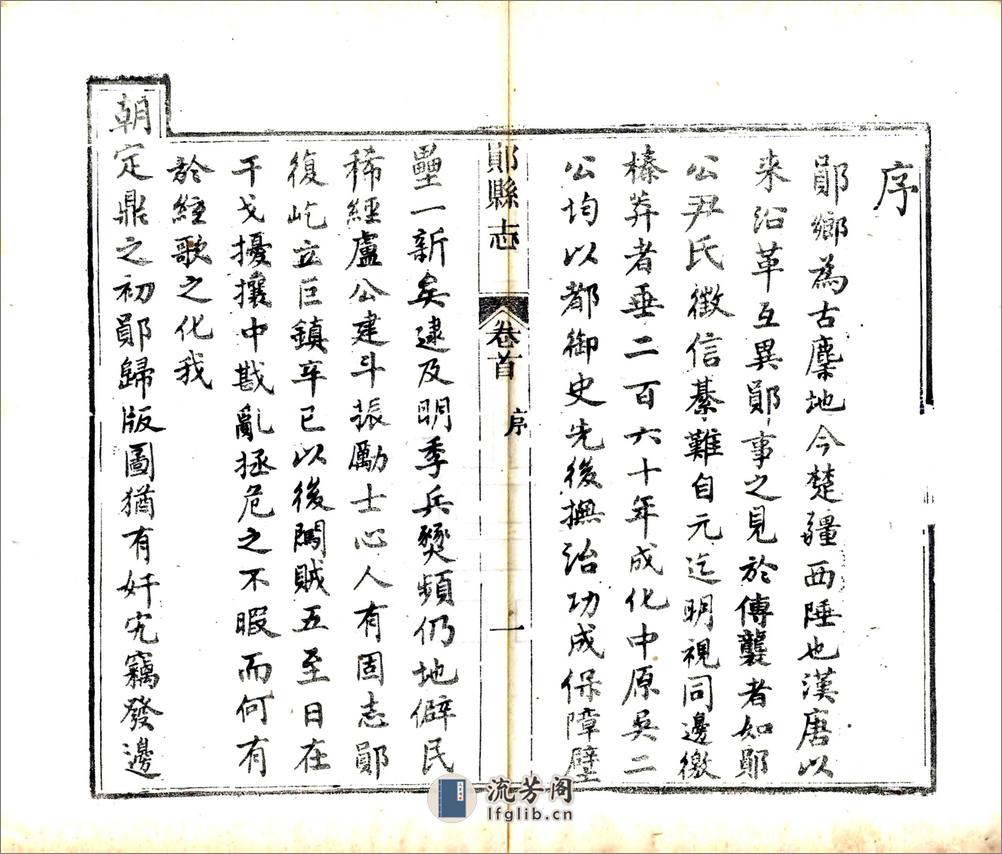 序
鄖鄉為古麇地今楚疆西陲也漢唐以
来沿革互異鄖事之見於傳襲者如鄖
公尹氏徵信綦難自元迄明視同邊徼
榛莽者垂二百六十年成化中原吳二
公均以都御史先後撫治功成保障壁
鄖縣志
卷首
序
一
壘一新矣逮及明季兵燹頻仍地僻民
稀經盧公建斗振勵士心人有固志鄖
復屹立巨鎮辛巳以後闖賊五至日在
干戈擾攘中戡亂拯危之不暇而何有
於經歌之化我
朝定鼎之初鄖歸版圖猶有奸宄竊發邊
流芳阁
lfglib.cn